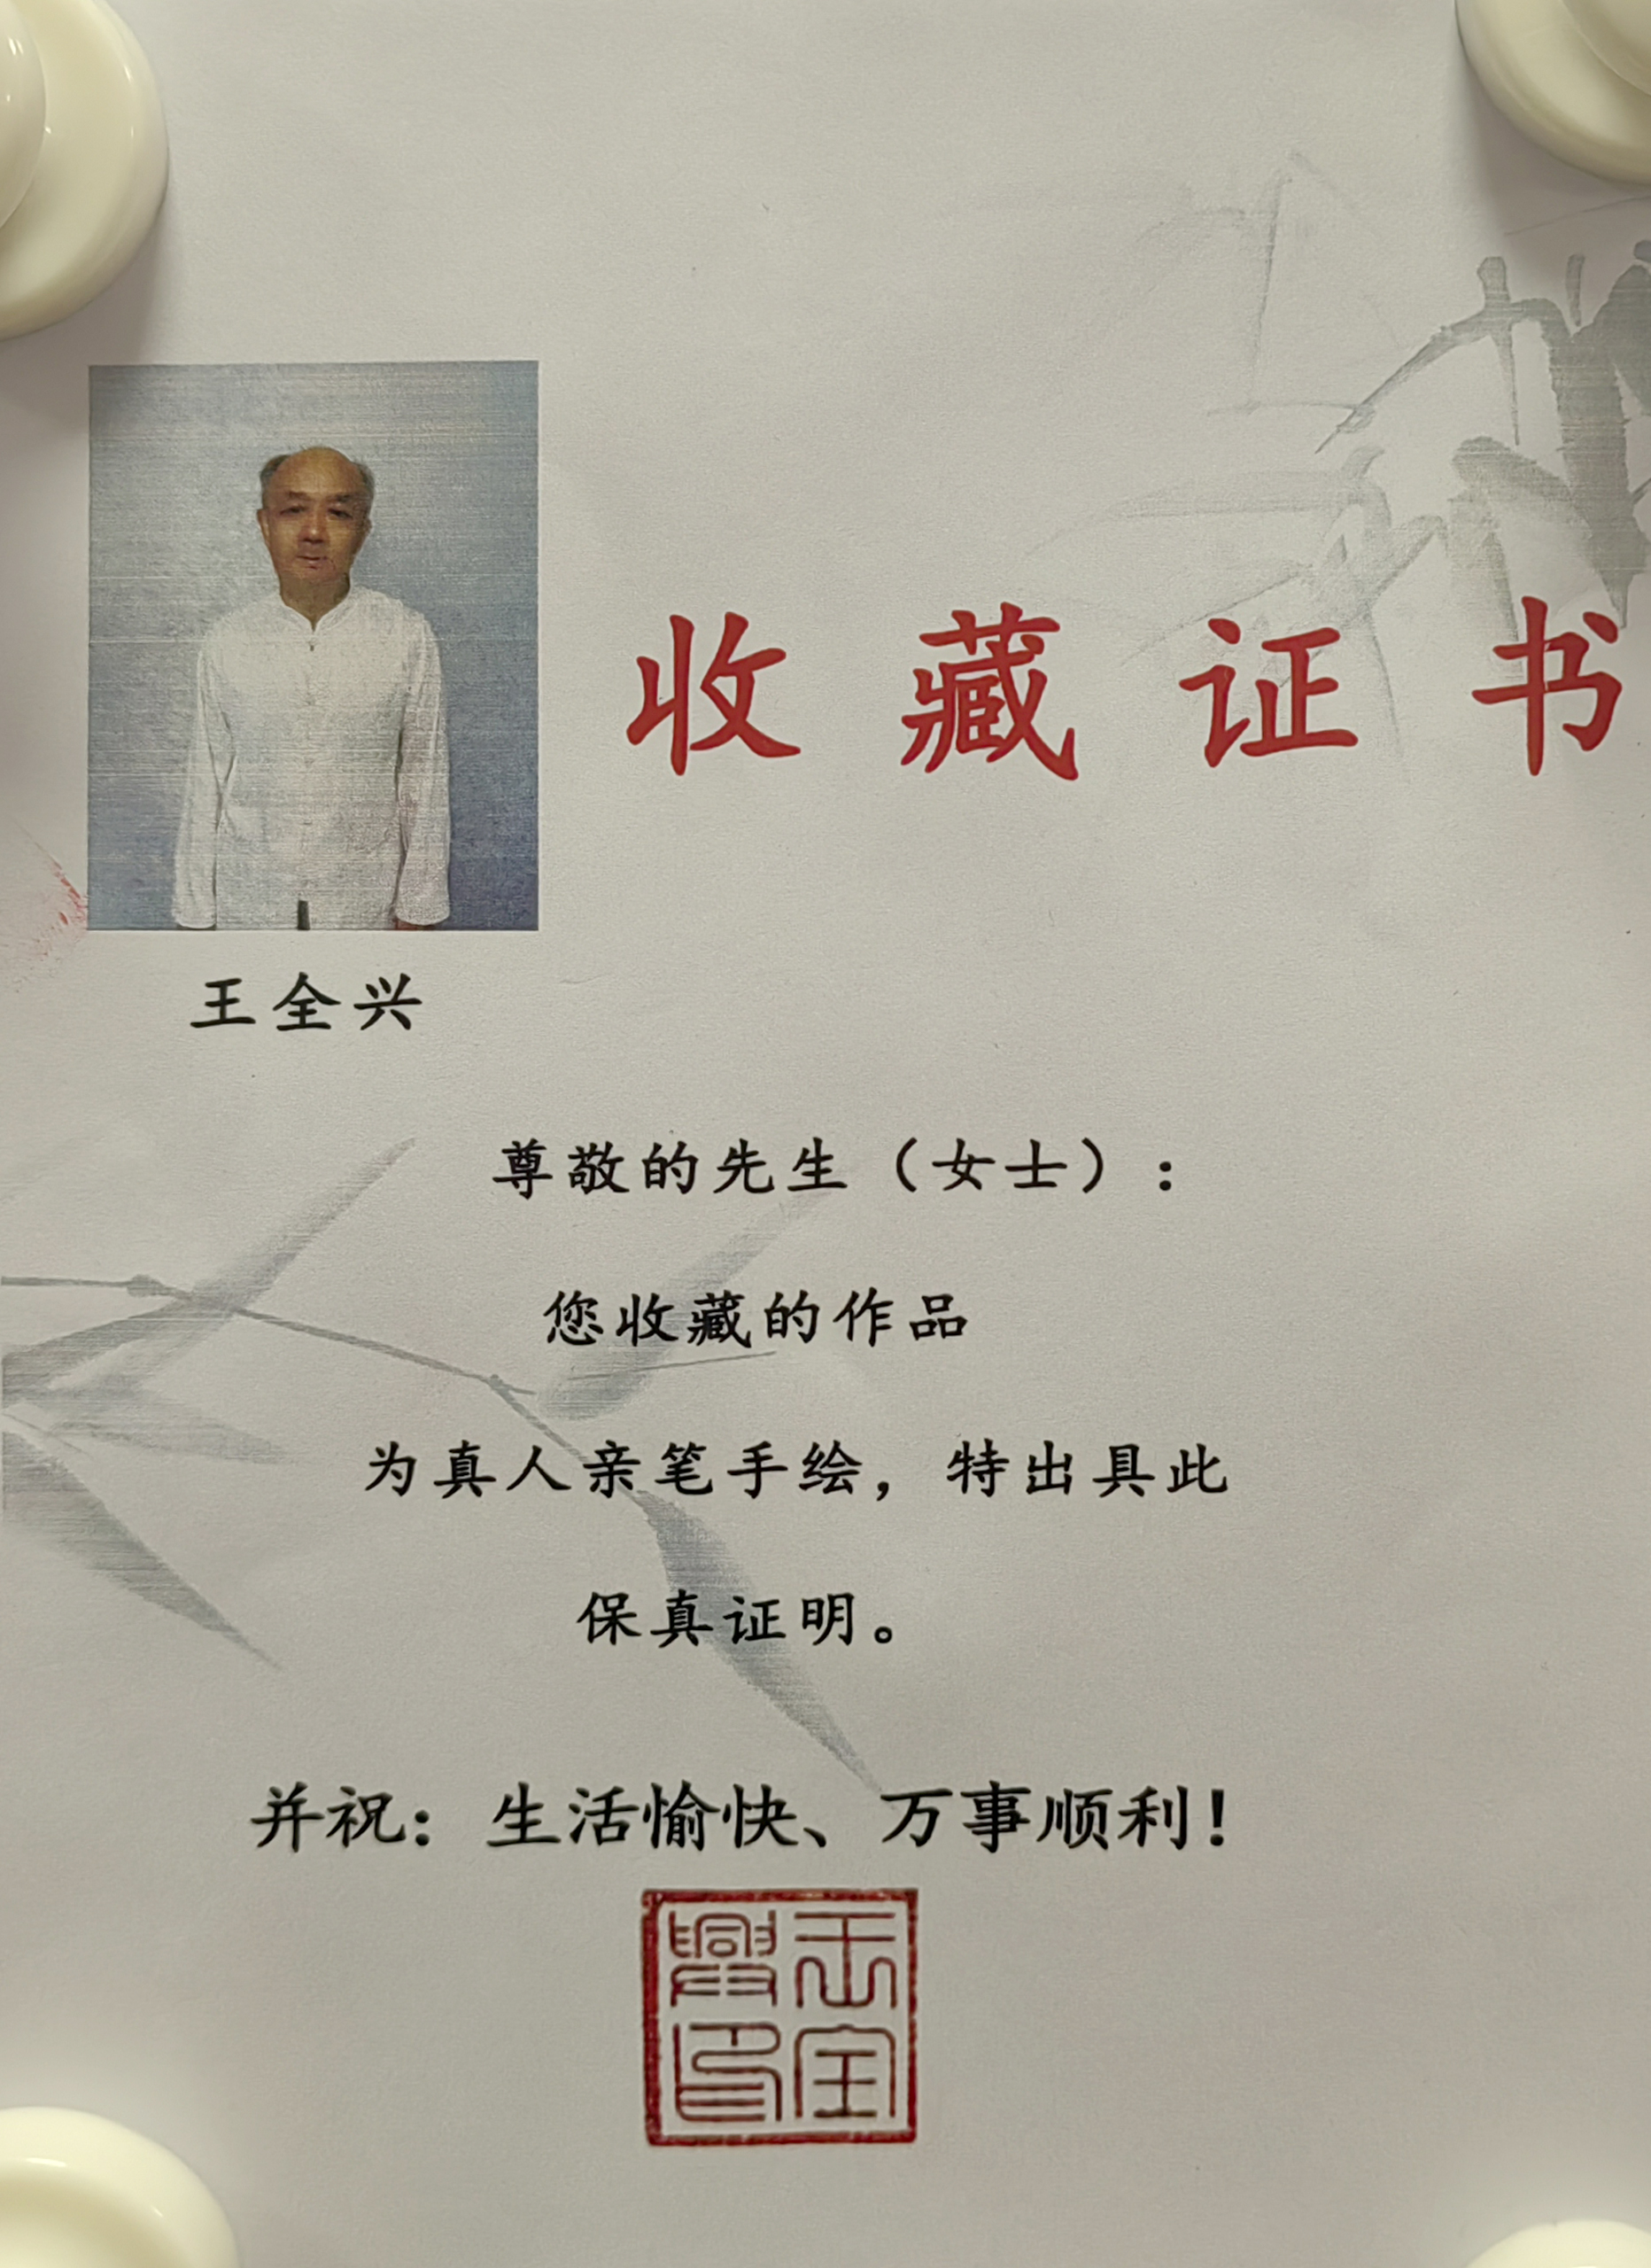 收藏证书
王全兴
尊敬的先生（女士）：
您收藏的作品
为真人亲笔手绘，特出具此
保真证明。
并祝：生活愉快、万事顺利！
王全
興印